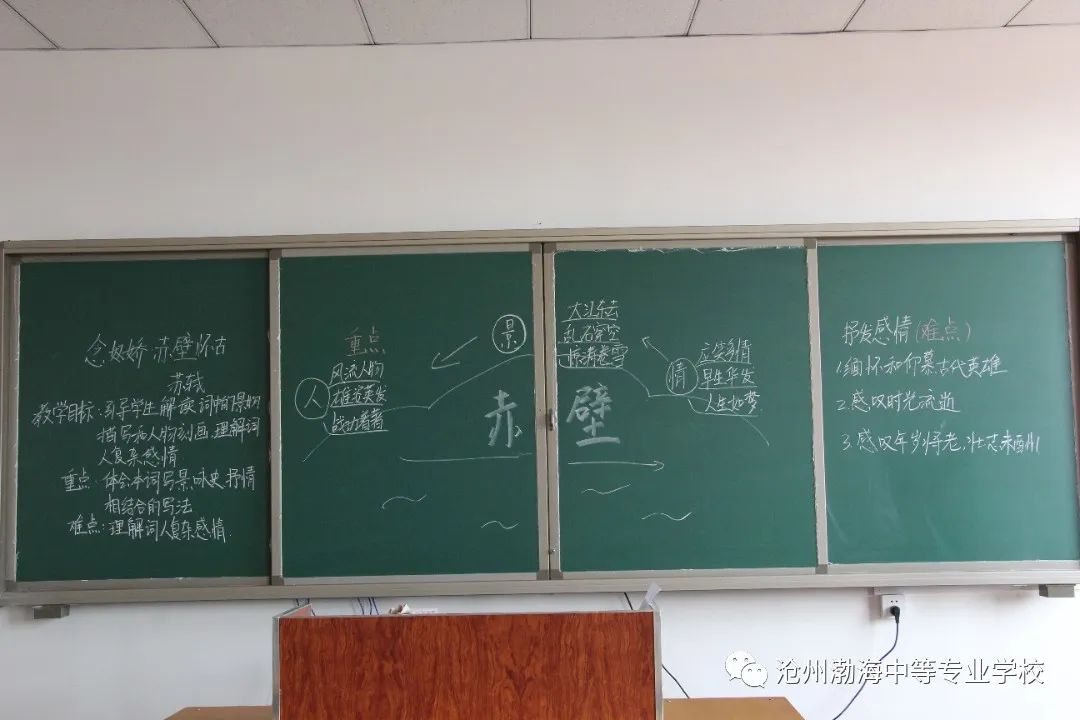 念奴娇·赤壁怀古
苏轼
教学目标:引导学生解读词中情景的
描写和人物刻画,理解词
人复杂感情
重点:体会本词写景,咏史,抒情
相结合的写法
难点:理解词人复杂感情
重点
人
风流人物
雄姿英发
战功着著
景
赤壁
大江东去
乱石穿空
惊涛卷雪
情
应笑多情
早生华发
人生如梦
抒发感情(难点)
1.缅怀和仰慕古代英雄
2.感叹时光流逝
3.感叹年岁将老,壮志未酬
沧州渤海中等专业学校